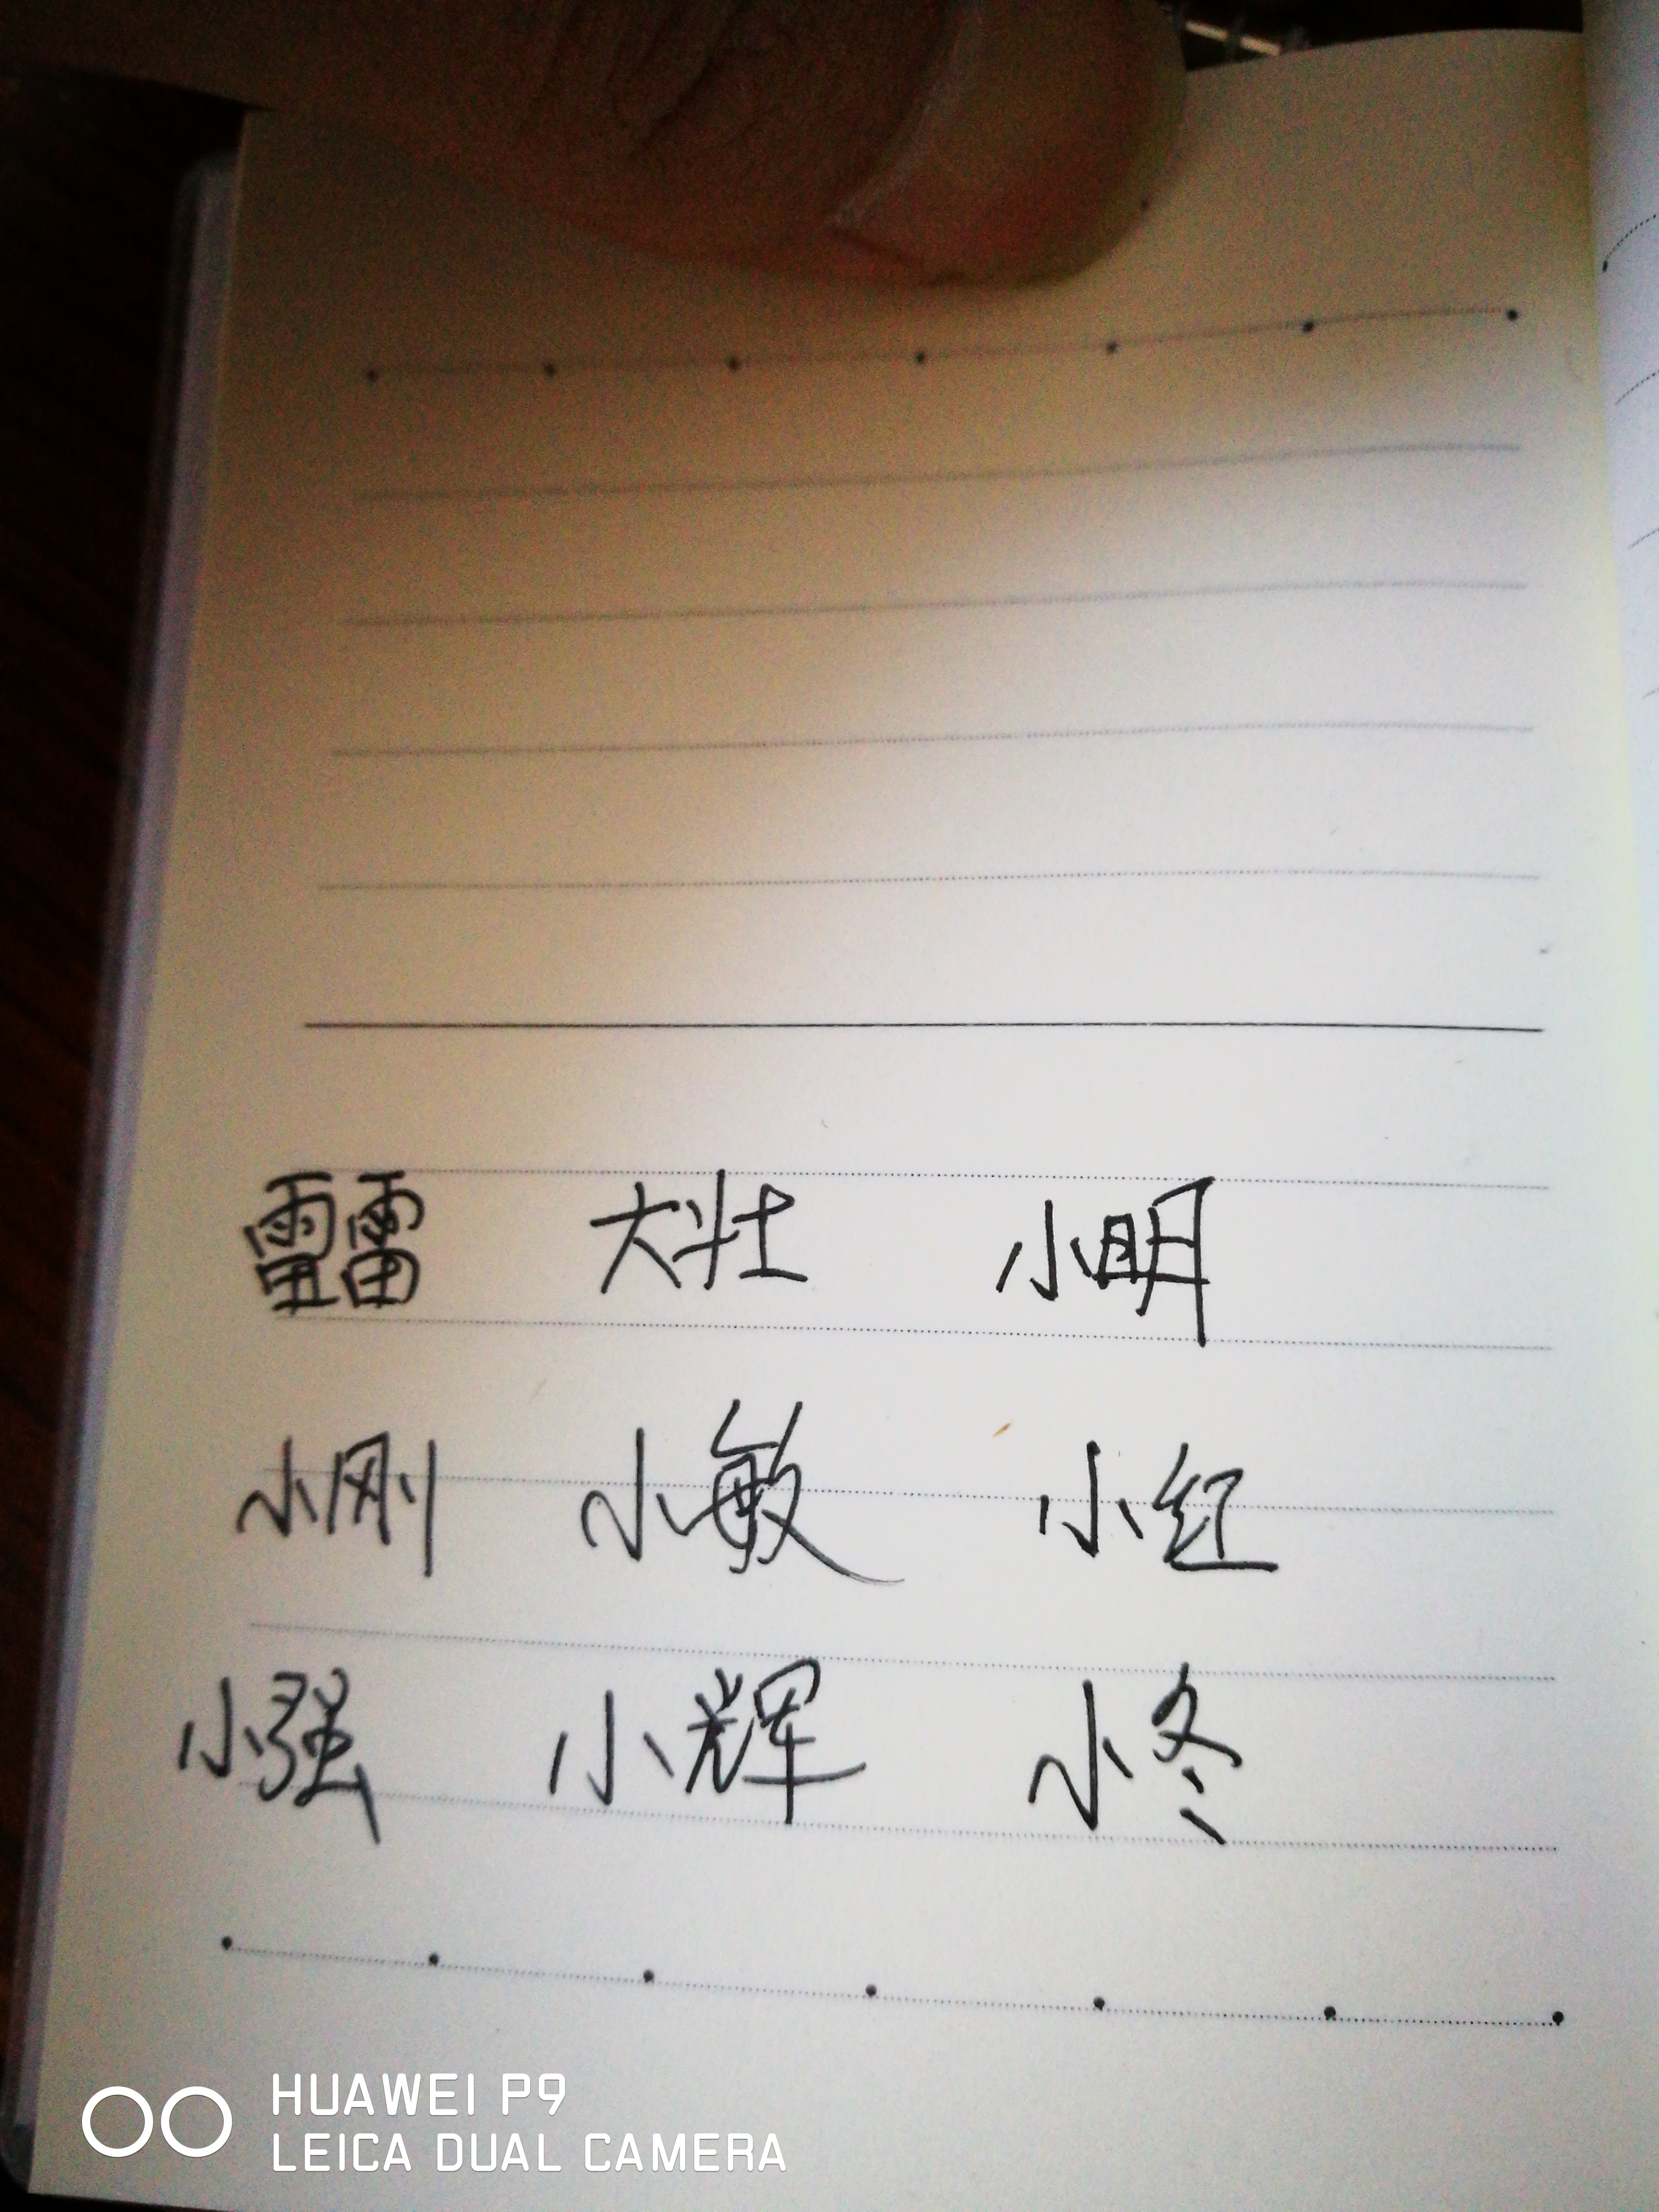 雷雷 大壮 小明
小刚 小敏 小红
小强 小辉 小冬
HUAWEI P9
LEICA DUAL CAMERA